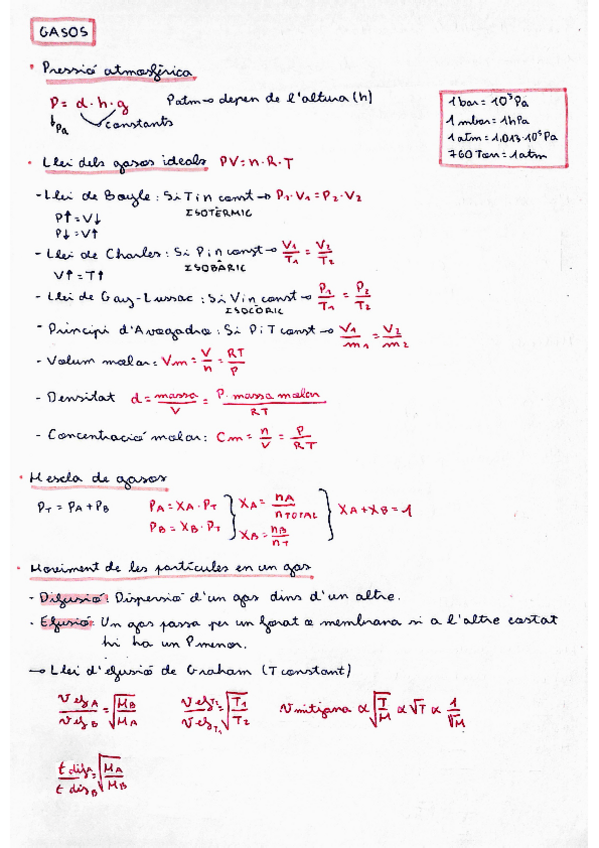 GASOS
• Pressió atmosfèrica
P = d · h · g    Patm → depen de l'altura (h)
Pa    constants
1 bar = 10⁵ Pa
1 mbar = 1 hPa
1 atm = 1,013·10⁵ Pa
760 Torr = 1 atm
• Llei dels gasos ideals PV = n · R · T
- Llei de Boyle : Si T i n const → P₁ · V₁ = P₂ · V₂
ISOTÈRMIC
P↑ = V↓
P↓ = V↑
- Llei de Charles : Si P i n const → V₁/T₁ = V₂/T₂
ISOBÀRIC
V↑ = T↑
- Llei de Gay-Lussac : Si V i n const → P₁/T₁ = P₂/T₂
ISOCÒRIC
- Principi d'Avogadro : Si P i T const → V₁/m₁ = V₂/m₂
- Volum molar : Vm = V/n = RT/P
- Densitat d = massa/V = P · massa molar/RT
- Concentració molar : Cm = n/V = P/RT
• Mescla de gasos
PT = PA + PB    PA = XA · PT    XA = nA/nTOTAL    XA + XB = 1
PB = XB · PT    XB = nB/nT
• Moviment de les partícules en un gas
- Difusió : Dispersió d'un gas dins d'un altre.
- Efusió : Un gas passa per un forat o membrana si a l'altre costat
hi ha un P menor.
→ Llei d'efusió de Graham (T constant)
v efA/v efB = √MB/MA    v efT₂/v efT₁ = √T₁/T₂    v mitjana ∝ √T/M ∝ √T ∝ 1/√M
t difA/t difB = √MA/MB